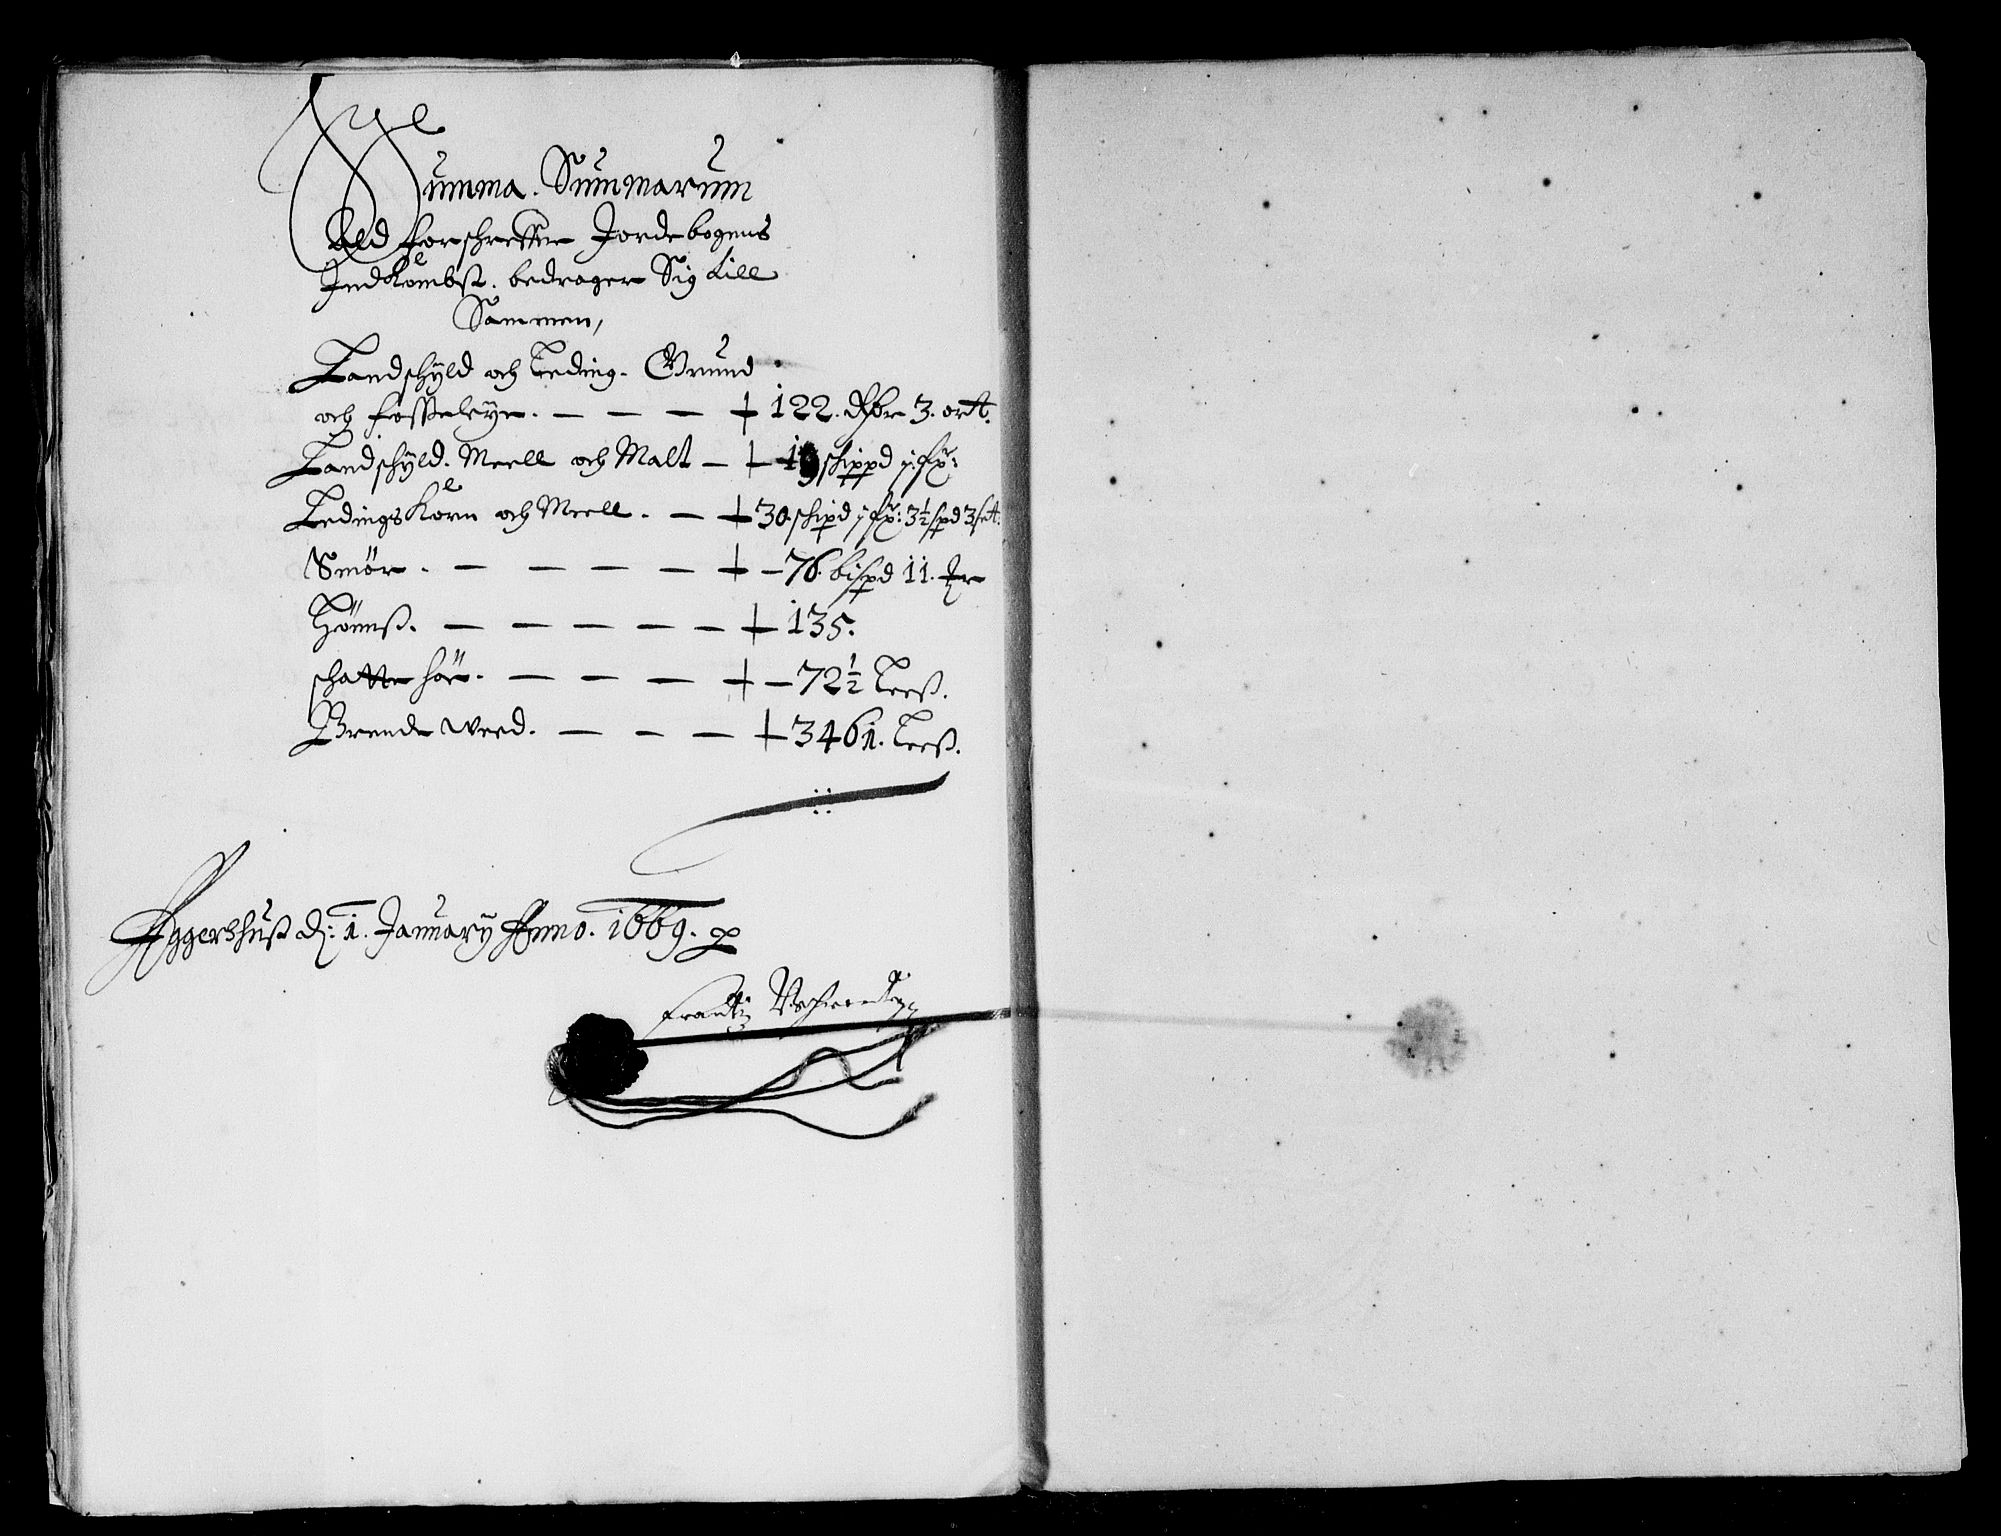 Summa. Summarum
Ald forschreffne Jordebogens
Indkombst. bedrager Sig till
Sammen,
Landschyld och Leding. Grund
och fosseleye. — — — 122. Rdr 3. ort.
Landschyld. Meell och Malt — 19 schippd
Ledings Korn och Meell. — 30 schipd 3½ spd 3 sett.
Smør. — — — — — 76. bispd 11.
Hønnß. — — — — — 135.
schatte høe. — — — — 72½ Leeß.
Brende weed. — — — 3461. Leeß.
Aggershuß d: 1. January Anno. 1669.
frantz